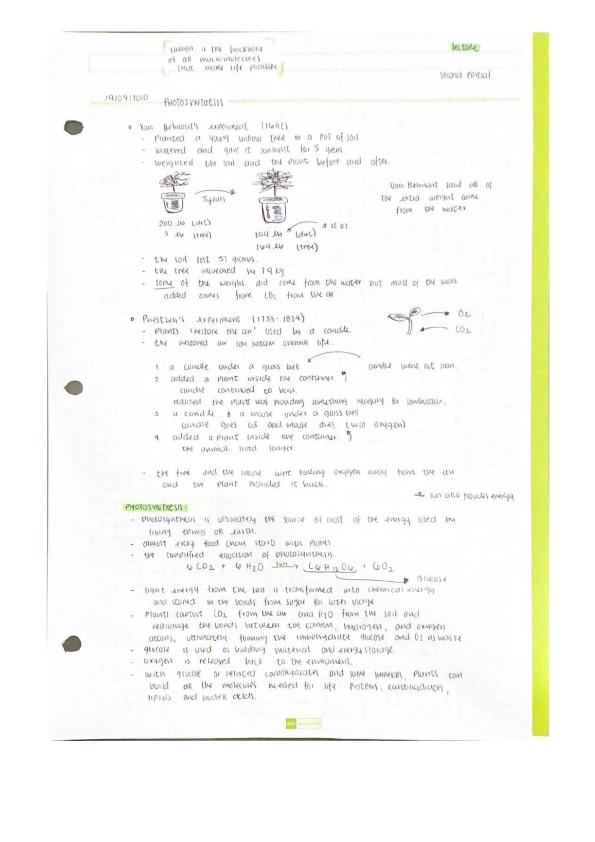 carbon is the backbone
of all macromolecules
that make life possible
lecture
second partial
PHOTOSYNTHESIS
Van Helmont's experiment (1692)
- Planted a young willow tree in a pot of soil
- watered and gave it sunlight for 5 years.
- weighted the soil and the plant before and after.
5 years
200 lb (dirt)
5 lb (tree)
(dirt)
164 lb (tree)
Van Helmont said all of
the extra weight came
from the water.
- the soil lost 57 grams.
- the tree increased by 74 kg
- some of the weight did come from the water but most of the
added comes from CO2 from the air
Priestley's experiment (1733-1804)
- Plants 'restore the air' used by a candle.
- the restored air can sustain animal life.
O2
CO2
1. a candle under a glass bell candle went out soon.
2. added a plant inside the container.
candle continued to burn.
realized the plant was providing something necessary for combustion.
3. a candle & a mouse under a glass bell
candle goes out and mouse dies. (w/o oxygen)
4. added a plant inside the container.
the animal lived longer.
- the fire and the mouse were taking oxygen away from the air
and the plant provided it back.
sun also provides energy
PHOTOSYNTHESIS
- photosynthesis is ultimately the source of most of the energy used by
living things on earth.
- almost every food chain starts with plants.
- the simplified equation of photosynthesis.
6 CO2 + 6 H2O sun → C6H12O6 + 6O2
glucose
- light energy from the sun is transformed into chemical energy
and stored in the bonds from sugar for later usage
- Plants capture CO2 from the air and H2O from the soil and
rearrange the bonds between the carbon, hydrogen, and oxygen
atoms, ultimately forming the carbohydrate glucose and O2 as waste
- glucose is used as building material and energy storage.
- oxygen is released back to the enviroment.
- with glucose or related carbohydrates and some minerals, plants can
build all the molecules needed for life proteins, carbohydrates,
lipids and nucleic acids.